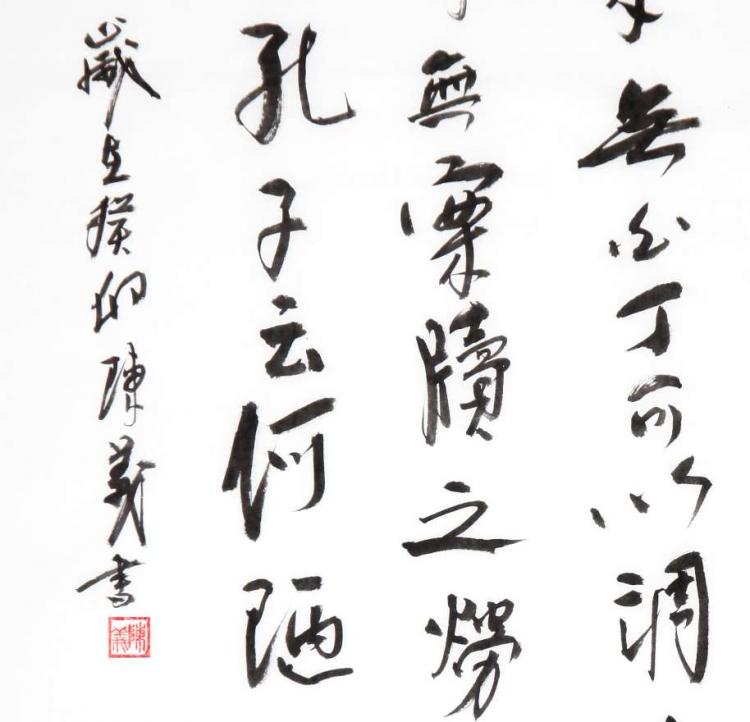 無白丁可以調
無案牘之勞
孔子云何陋
歲在癸卯陳義書
陳義